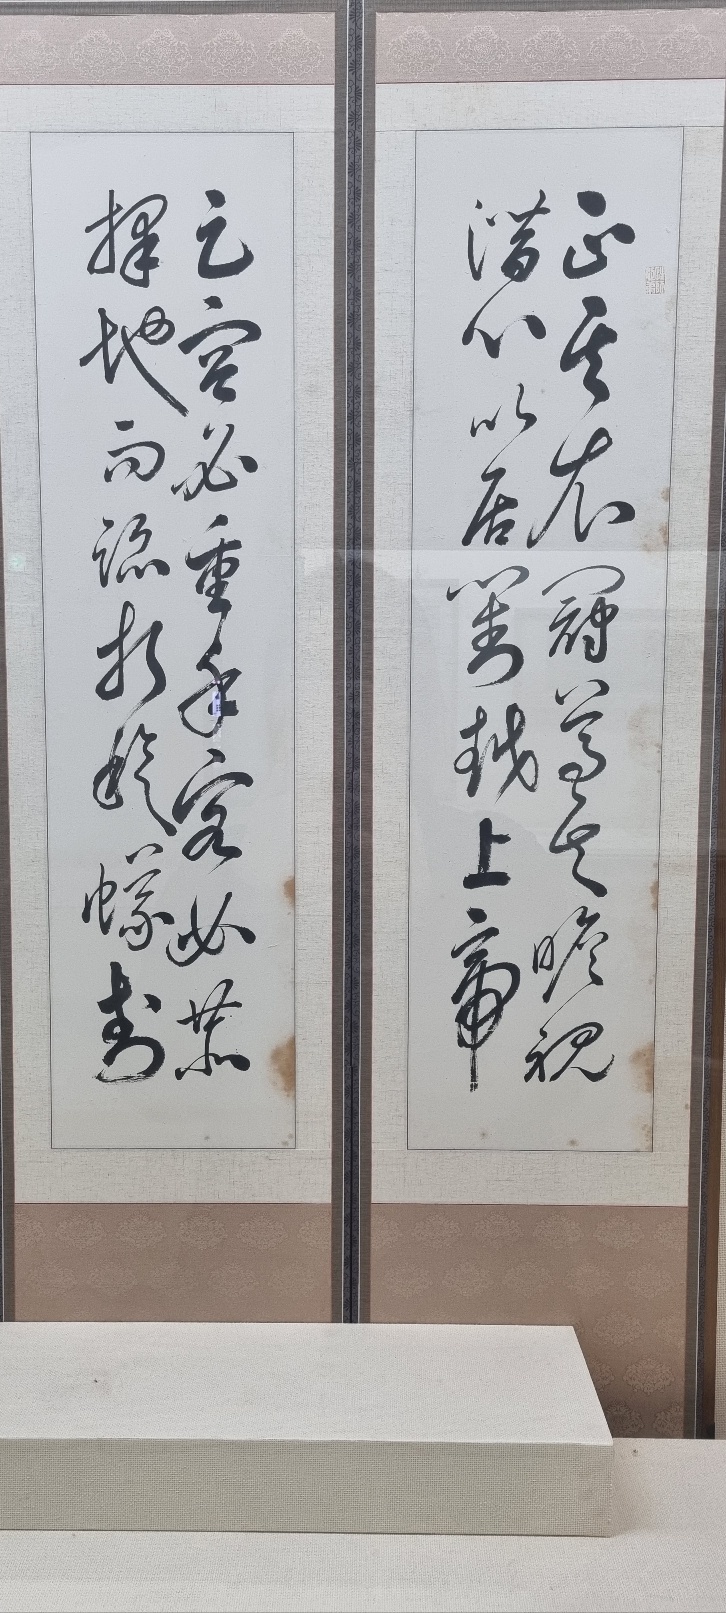 正其衣冠尊其瞻視
潛心以居對越上帝
足容必重手容必恭
擇地而蹈折旋蟻封